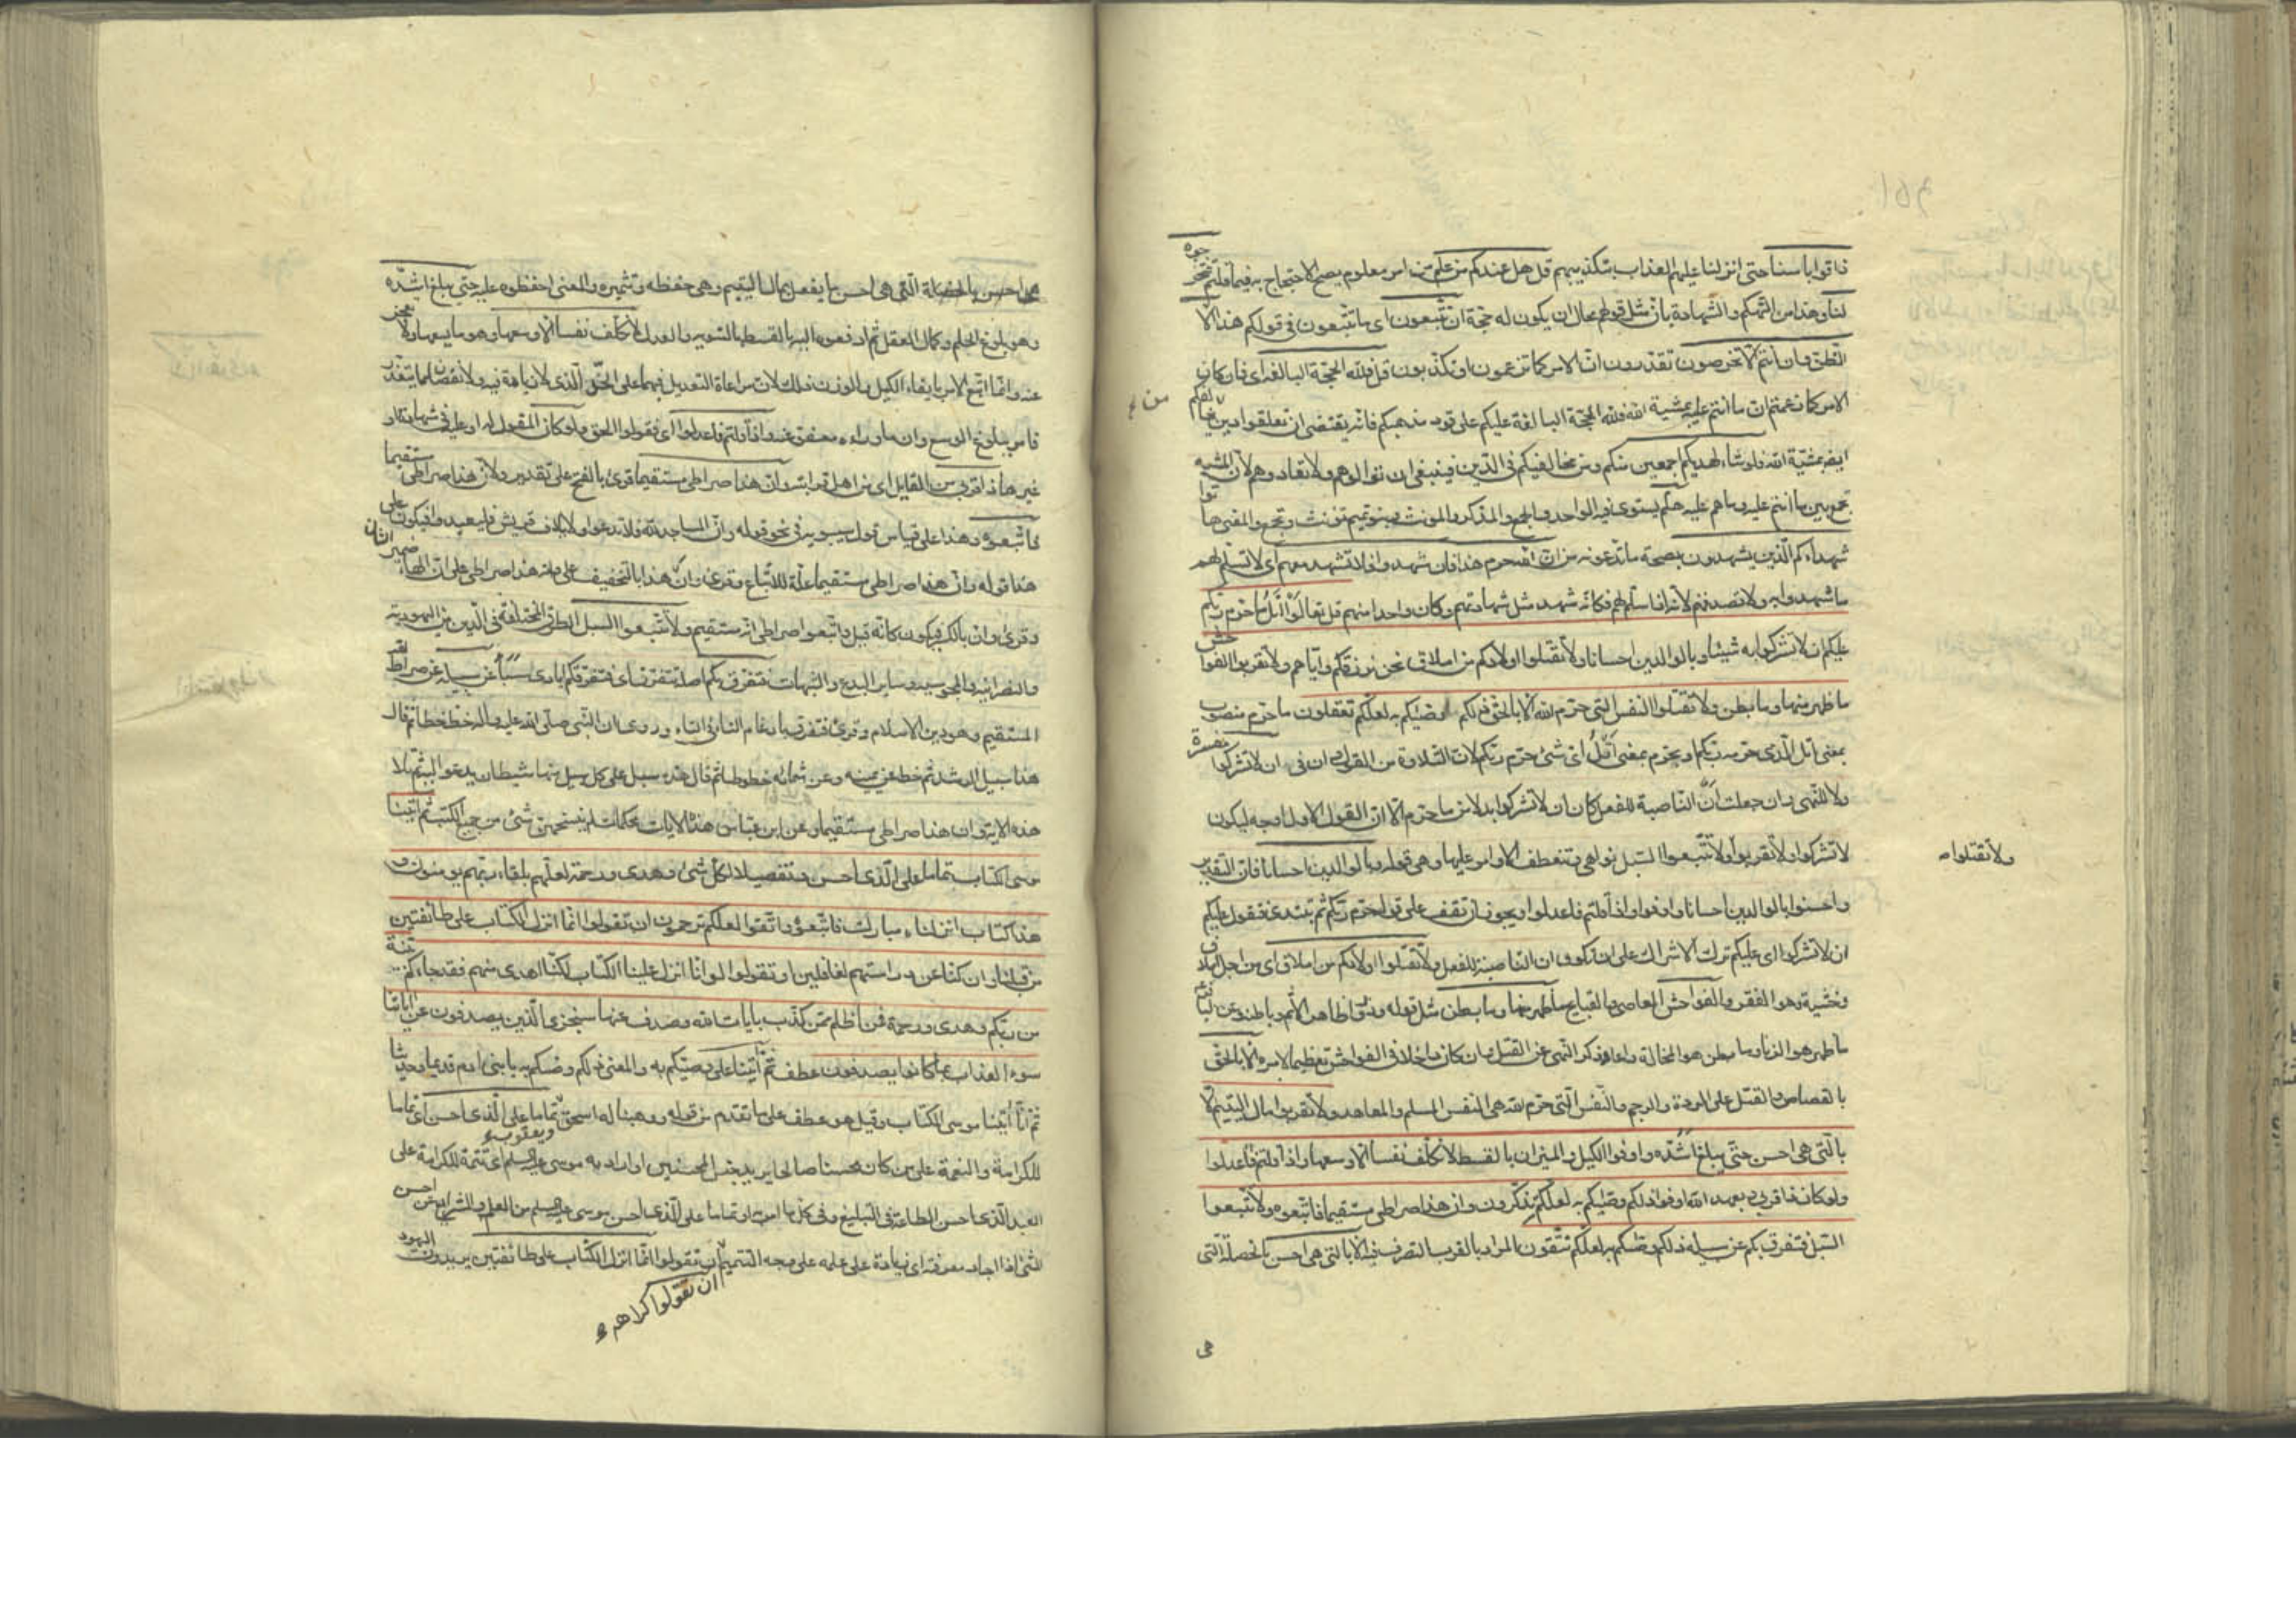 ذاقوا باسنا حتى انزلنا عليهم العذاب بتكذيبهم قل هل عندكم من علم من امر معلوم يصح الاحتجاج به فيما قلتم فتخرجوه
لنا وهذا من التهكم والشهادة بان مثل قولهم محال ان يكون له حجة ان تتبعون اى ما تتبعون فى قولكم هذا الا
الظن وان انتم الا تخرصون تقدرون ان الامر كما تزعمون او تكذبون قل فلله الحجة البالغة اى فان كان
الامر كما زعمتم ان ما انتم عليه بمشية الله فلله الحجة البالغة عليكم على قود مذهبكم فانه يقتضى ان تعلقوا دين من يخالفكم
ايضا بمشيّة الله فلو شاء لهديكم اجمعين منكم ومن مخالفيكم فى الدّين فينبغى ان توالوهم ولا تعادوهم لان المشية
تجمع بين ما انتم عليه وما هم عليه هلم يستوى فيه الواحد والجمع والمذكر والمونث وبنو تميم تونث وتجمع والمعنى هاتوا
شهداءكم الّذين يشهدون بصحة ما تدعونه من ان الله حرم هذا فان شهدوا فلا تشهد معهم اى لا تسلم لهم
ما شهدوا به ولا تصدقهم لانه اذا سلم لهم فكانّه شهد مثل شهادتهم وكان واحدا منهم قل تعالوا اتل ما حرّم ربّكم
عليكم ان لا تشركوا به شيئا وبالوالدين احسانا ولا تقتلوا اولادكم من املاق نحن نرزقكم وايّاهم ولا تقربوا الفواحش
ما ظهر منها وما بطن ولا تقتلوا النفس التى حرّم الله الا بالحقّ ذلكم وصّيكم به لعلّكم تعقلون ما حرّم منصوب
بمعنى اتل الّذى حرمه ربّكم او بحرّم بمعنى اتلُ اى شئ حرّم ربّكم لان التلاوة من القول وان فى ان لا تشركوا مفسرة
ولا للنّهى وان جعلت انْ الناصبة للفعل كان ان لا تشركوا بدلا من ما حرّم الّا ان القول الاول اوجه ليكون
لا تشركوا ولا تقربوا ولا تتّبعوا السّبل نواهى وتنعطف الاوامر عليها وهى قوله وبالوالدين احسانا فان التّقدير
ولا تقتلوا ص
واحسنوا بالوالدين احسانا واوفوا واذا قلتم فاعدلوا ويجوز ان تقف على قوله حرّم ربّكم ثم تبتدئ فتقول عليكم
ان لا تشركوا اى عليكم ترك الاشراك على ان تكون ان الناصبة للفعل ولا تقتلوا اولادكم من املاق اى من اجل املاق
وخشية وهو الفقر والفواحش المعاصى والقبايح ما ظهر منها وما بطن مثل قوله وذروا ظاهر الاثم وباطنه وعن الباقر ع
ما ظهر هو الزنا وما بطن هو المخالة واعاد ذكر النّهى عن القتل وان كان داخلا فى الفواحش تعظيما لامره الا بالحقّ
بالقصاص والقتل على الردة والرجم والنّفس الّتى حرّم الله هى النّفس المسلم والمعاهد ولا تقربوا مال اليتيم الّا
بالّتى هى احسن حتّى يبلغ اشدّه واوفوا الكيل والميزان بالقسط لا نكلّف نفسا الّا وسعها واذا قلتم فاعدلوا
ولو كان ذا قربى وبعهد الله اوفوا ذلكم وصّيكم به لعلّكم تذكّرون وان هذا صراطى مستقيما فاتّبعوه ولا تتّبعوا
السّبل فتفرق بكم عن سبيله ذلكم وصّيكم به لعلّكم تتّقون المراد بالقرب التصرف فيه الا بالتى هى احسن بالخصلة الّتى
هى
احسن بالخصلة الّتى هى احسن ما يفعل بمال اليتيم وهى حفظه وتثميره والمعنى احفظوه عليه حتى يبلغ اشدّه
وهو بلوغ الحلم وكمال العقل ثم ادفعوه اليه بالقسط بالتسوية والعدل لا نكلّف نفسا الا وسعها وهو ما يسعها ولا تعجز
عنه وانّما اتبع الامر بايفاء الكيل والوزن ذلك لان مراعاة التعديل فيهما على الحدّ الّذى لا زيادة فيه ولا نقصان مما يتعذّر
فامر ببلوغ الوسع وان ما وراءه معفو عنه واذا قلتم فاعدلوا اى فقولوا الحق ولو كان المقول له او عليه فى شهادة او
غيرها ذا قربى من القايل اى من اهل قرابته وان هذا صراطى مستقيما قرئ بالفتح على تقدير ولان هذا صراطى مستقيما
فاتّبعوه وهذا على قياس قول سيبويه فى نحو قوله وانّ المساجد لله فلا تدعوا ولايلاف قريش فليعبدوا فيكون على
هذا قوله وان هذا صراطى مستقيما علّة للاتّباع وقرئ وانْ هذا بالتخفيف على وانه هذا صراطى على ان الهاء ضمير الشان
وقرئ وان بالكسر فيكون كانّه قيل واتّبعوا صراطى انه مستقيم ولا تتّبعوا السبل الطرق المختلفة فى الّدين من اليهودية
والنصرانية والمجوسية وساير البدع والشبهات فتفرق بكم اصله تتفرّق اى فتفرقكم ايادى سبأ عن سبيله عن صراط الله
المستقيم وهو دين الاسلام وقرئ فتفرق بادغام التاء فى التاء وروى ان النّبى صلّى الله عليه وآله خط خطا ثم قال
هذا سبيل الرشد ثم خط عن يمينه وعن شماله خطوطا ثم قال هذه سبل على كل سبيل منها شيطان يدعو اليه ثم تلا
هذه الاية وان هذا صراطى مستقيما وعن ابن عباس هذه الايات محكمات لم ينسخهن شئ من جميع الكتب ثم اتينا
موسى الكتاب تماما على الّذى احسن وتفصيلا لكلّ شئ وهدى ورحمة لعلّهم بلقاء ربّهم يومنون و
هذا كتاب انزلناه مبارك فاتّبعوه واتّقوا لعلّكم ترحمون ان تقولوا انّما انزل الكتاب على طائفتين
من قبلنا وان كنّا عن دراستهم لغافلين او تقولوا لو انّا انزل علينا الكتاب لكنّا اهدى منهم فقد جاءكم بيّنة
من ربّكم وهدى ورحمة فمن اظلم ممّن كذّب بايات الله وصدف عنها سنجزى الّذين يصدفون عن اياتنا
سوء العذاب بما كانوا يصدفون عطف ثمّ اتينا على وصّيكم به والمعنى ذلكم وصّيكم به يا بنى ادم قديما وحديثا
ثم انّا اتينا موسى الكتاب وقيل هو عطف على ما تقدم من قوله ووهبنا له اسحق ويعقوب تماما على الّذى احسن اى تماما
للكرامة والنعمة على من كان محسنا صالحا يريد جنس المحسنين او اراد به موسى عليه السلم اى تتمّة للكرامة على
العبد الّذى احسن الطاعة فى التبليغ وفى كل ما امر به او تماما على الّذى احسن موسى عليه السلم من العلم والشرايع من احسن
الشئ اذا اجاد معرفته اى زيادة على علمه على وجه التتميم ان تقولوا انّما انزل الكتاب على طائفتين يريدون اليهود
ان تقولوا كراهه